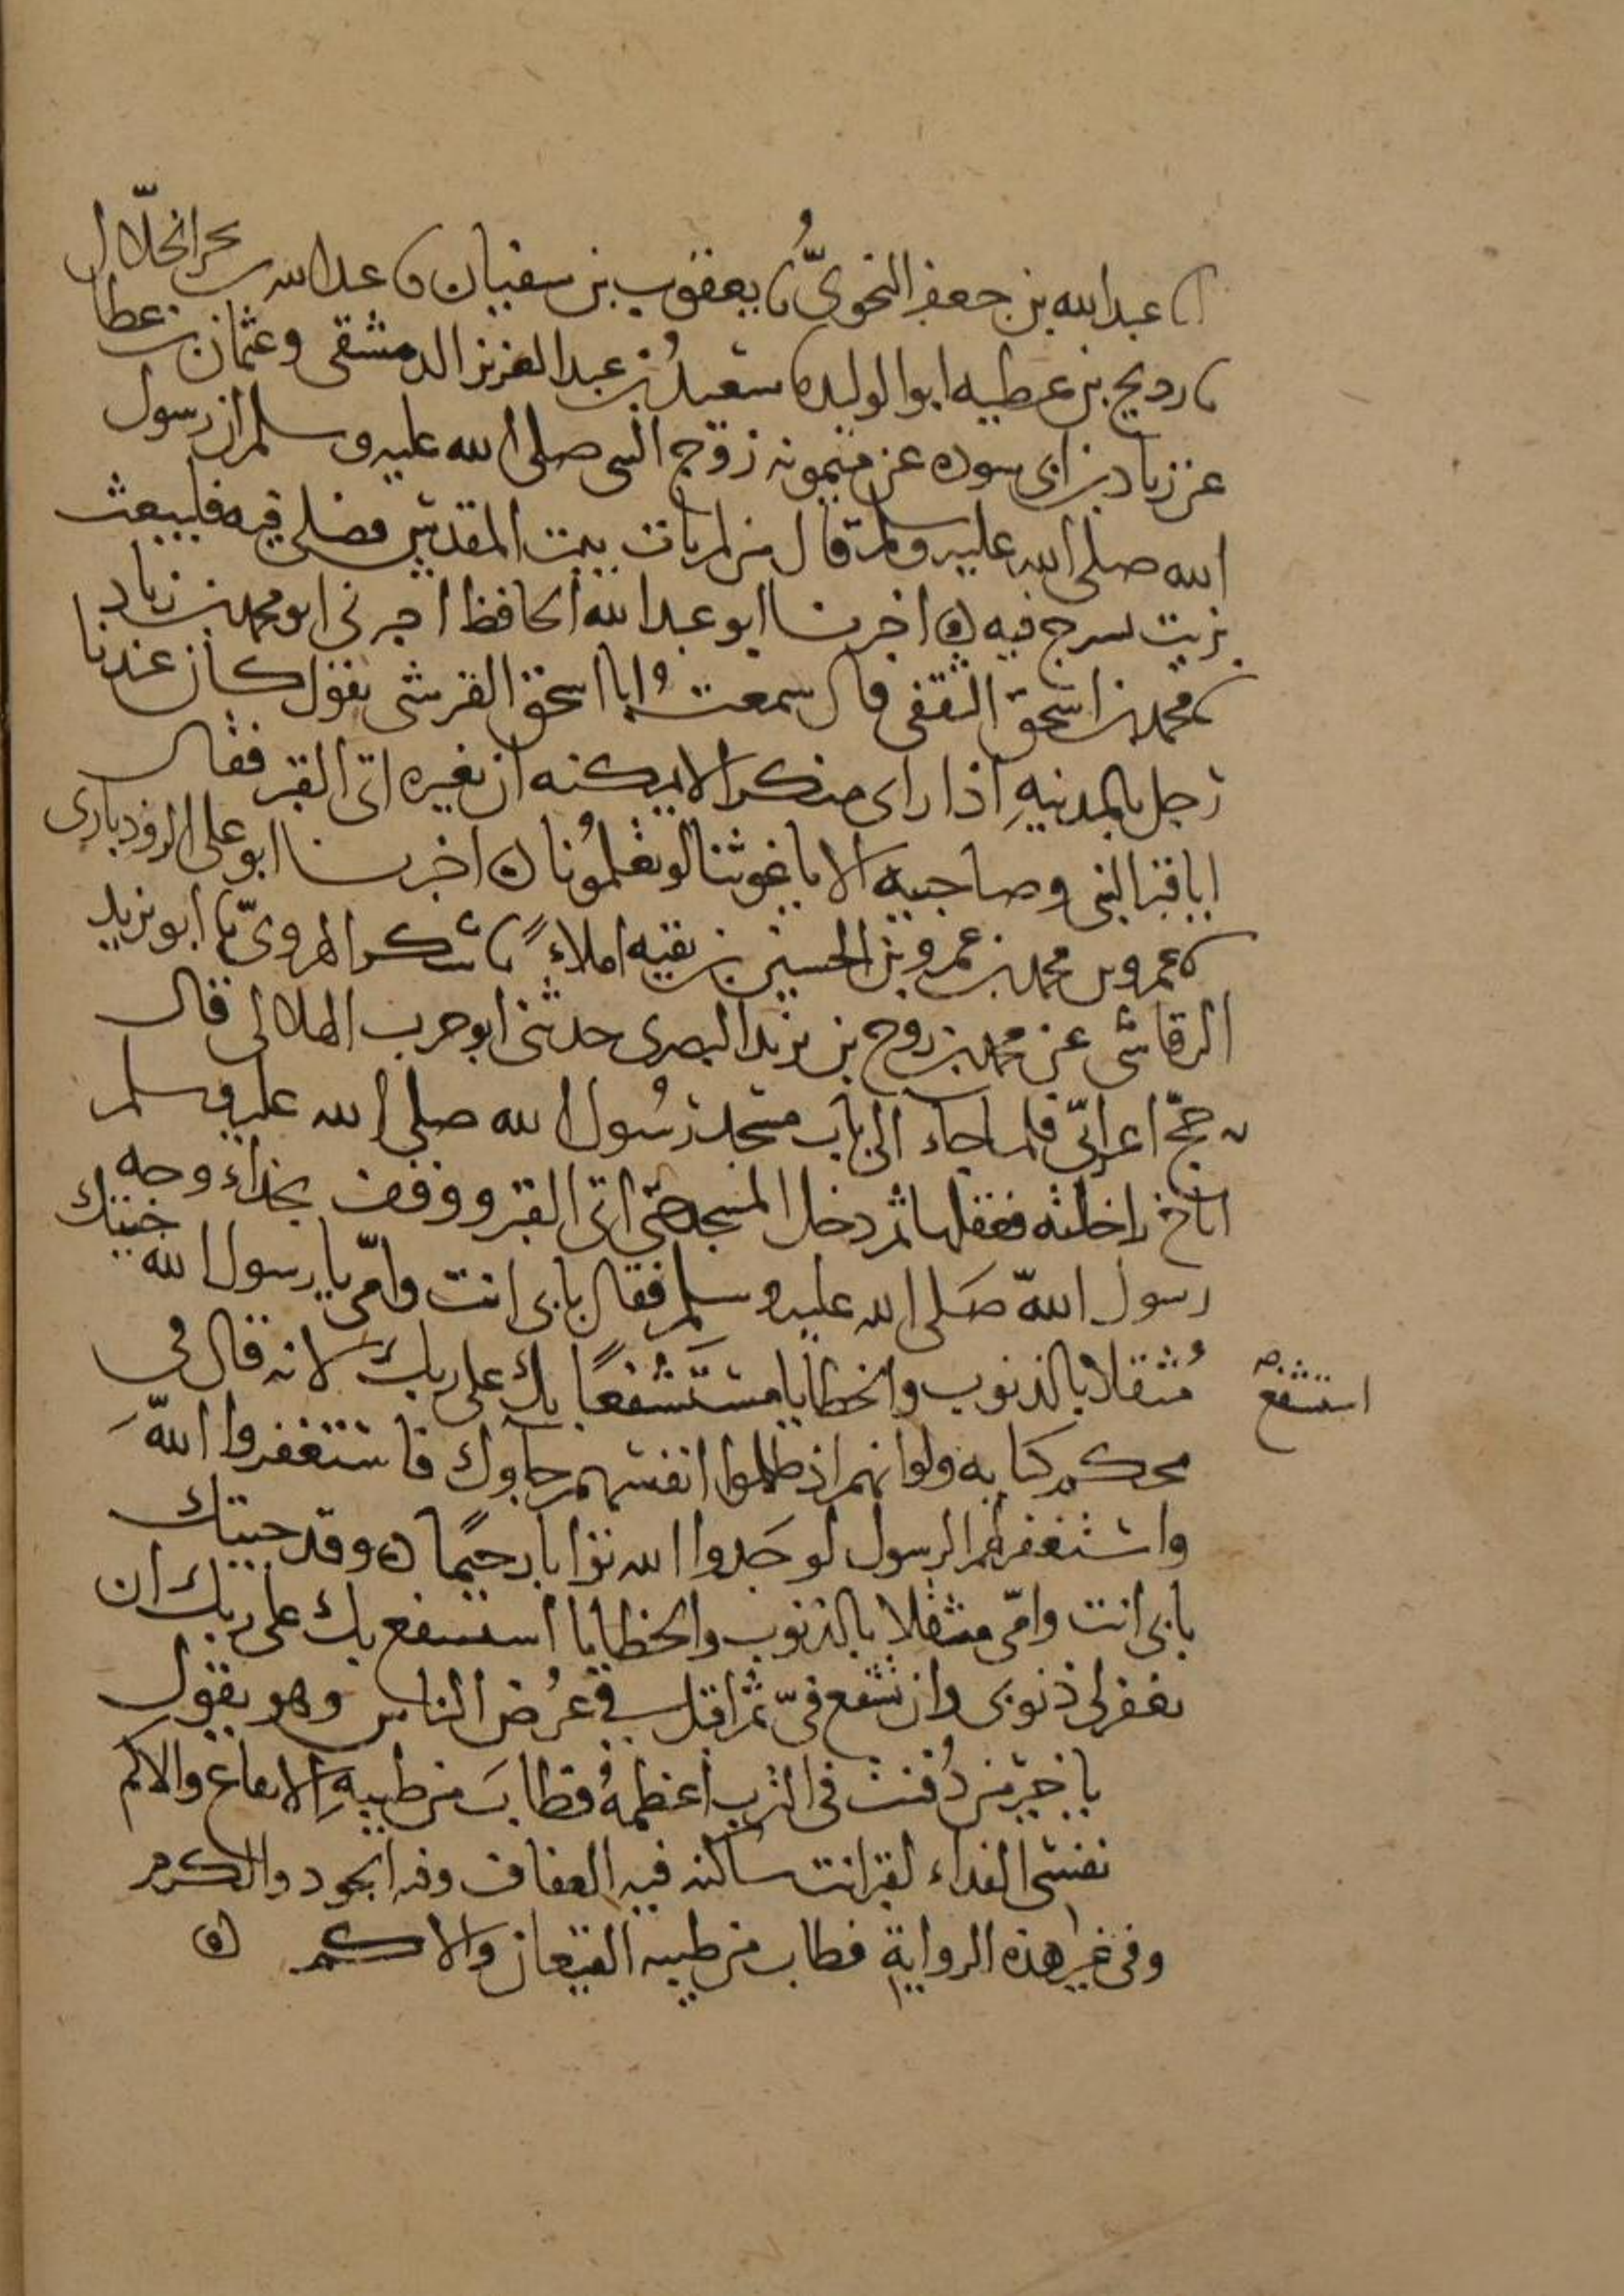 نا عبدالله بن جعفر النحوي نا يعقوب بن سفيان نا عبدالله بن بحر الخلال
نا رديح بن عطيه ابو الوليد نا سعيد بن عبد العزيز الدمشقي وعثمان بن عطا
عن زياد بن ابي سوده عن ميمونه زوج النبي صلى الله عليه وسلم ان رسول
الله صلى الله عليه وسلم قال من لم يات بيت المقدس فصلى فيه فليبعث
بزيت يسرج فيه ه اخبرنا ابو عبد الله الحافظ اخبرني ابو محمد بن زياد
نا محمد بن اسحق الثقفي قال سمعت ابا اسحق القرشي يقول كان عندنا
رجل بالمدينه اذا راى منكرا لا يمكنه ان يغيره اتى القبر فقال
ايا قبر النبي وصاحبيه الا يا غوثنا لو تعلمونا ه اخبرنا ابو علي الروذباري
نا عمرو بن محمد بن عمرو بن الحسين بن بقيه املاءً نا شكر الهروي نا ابو يزيد
الرقاشي عن محمد بن روح بن يزيد البصري حدثني ابو حرب الهلالي قال
حج اعرابي فلما جاء الى باب مسجد رسول الله صلى الله عليه وسلم
اناخ راحلته فعقلها ثم دخل المسجد حتى اتى القبر ووقف بحذاء وجه
رسول الله صلى الله عليه وسلم فقال بابي انت وامي يا رسول الله جيتك
مُثقلا بالذنوب والخطايا مستشفعًا بك على ربك لانه قال في
استشفع
محكم كتابه ولو انهم اذ ظلموا انفسهم جاوك فاستغفروا الله
واستغفر لهم الرسول لوجدوا الله توابا رحيمًا ه وقد جيتك
بابي انت وامي مثقلا بالذنوب والخطايا استشفع بك على ربك ان
يغفر لي ذنوبي وان تشفع فيّ ثم اقبل في عُرض الناس وهو يقول
يا خير من دُفنت في الترب اعظمهُ فطابَ من طيبهِ الابقاع والاكم
نفسي الفداء لقبر انت ساكنه فيه العفاف وفيه الجود والكرم
وفي غير هذه الرواية فطاب من طيبه القيعان والاكم ه